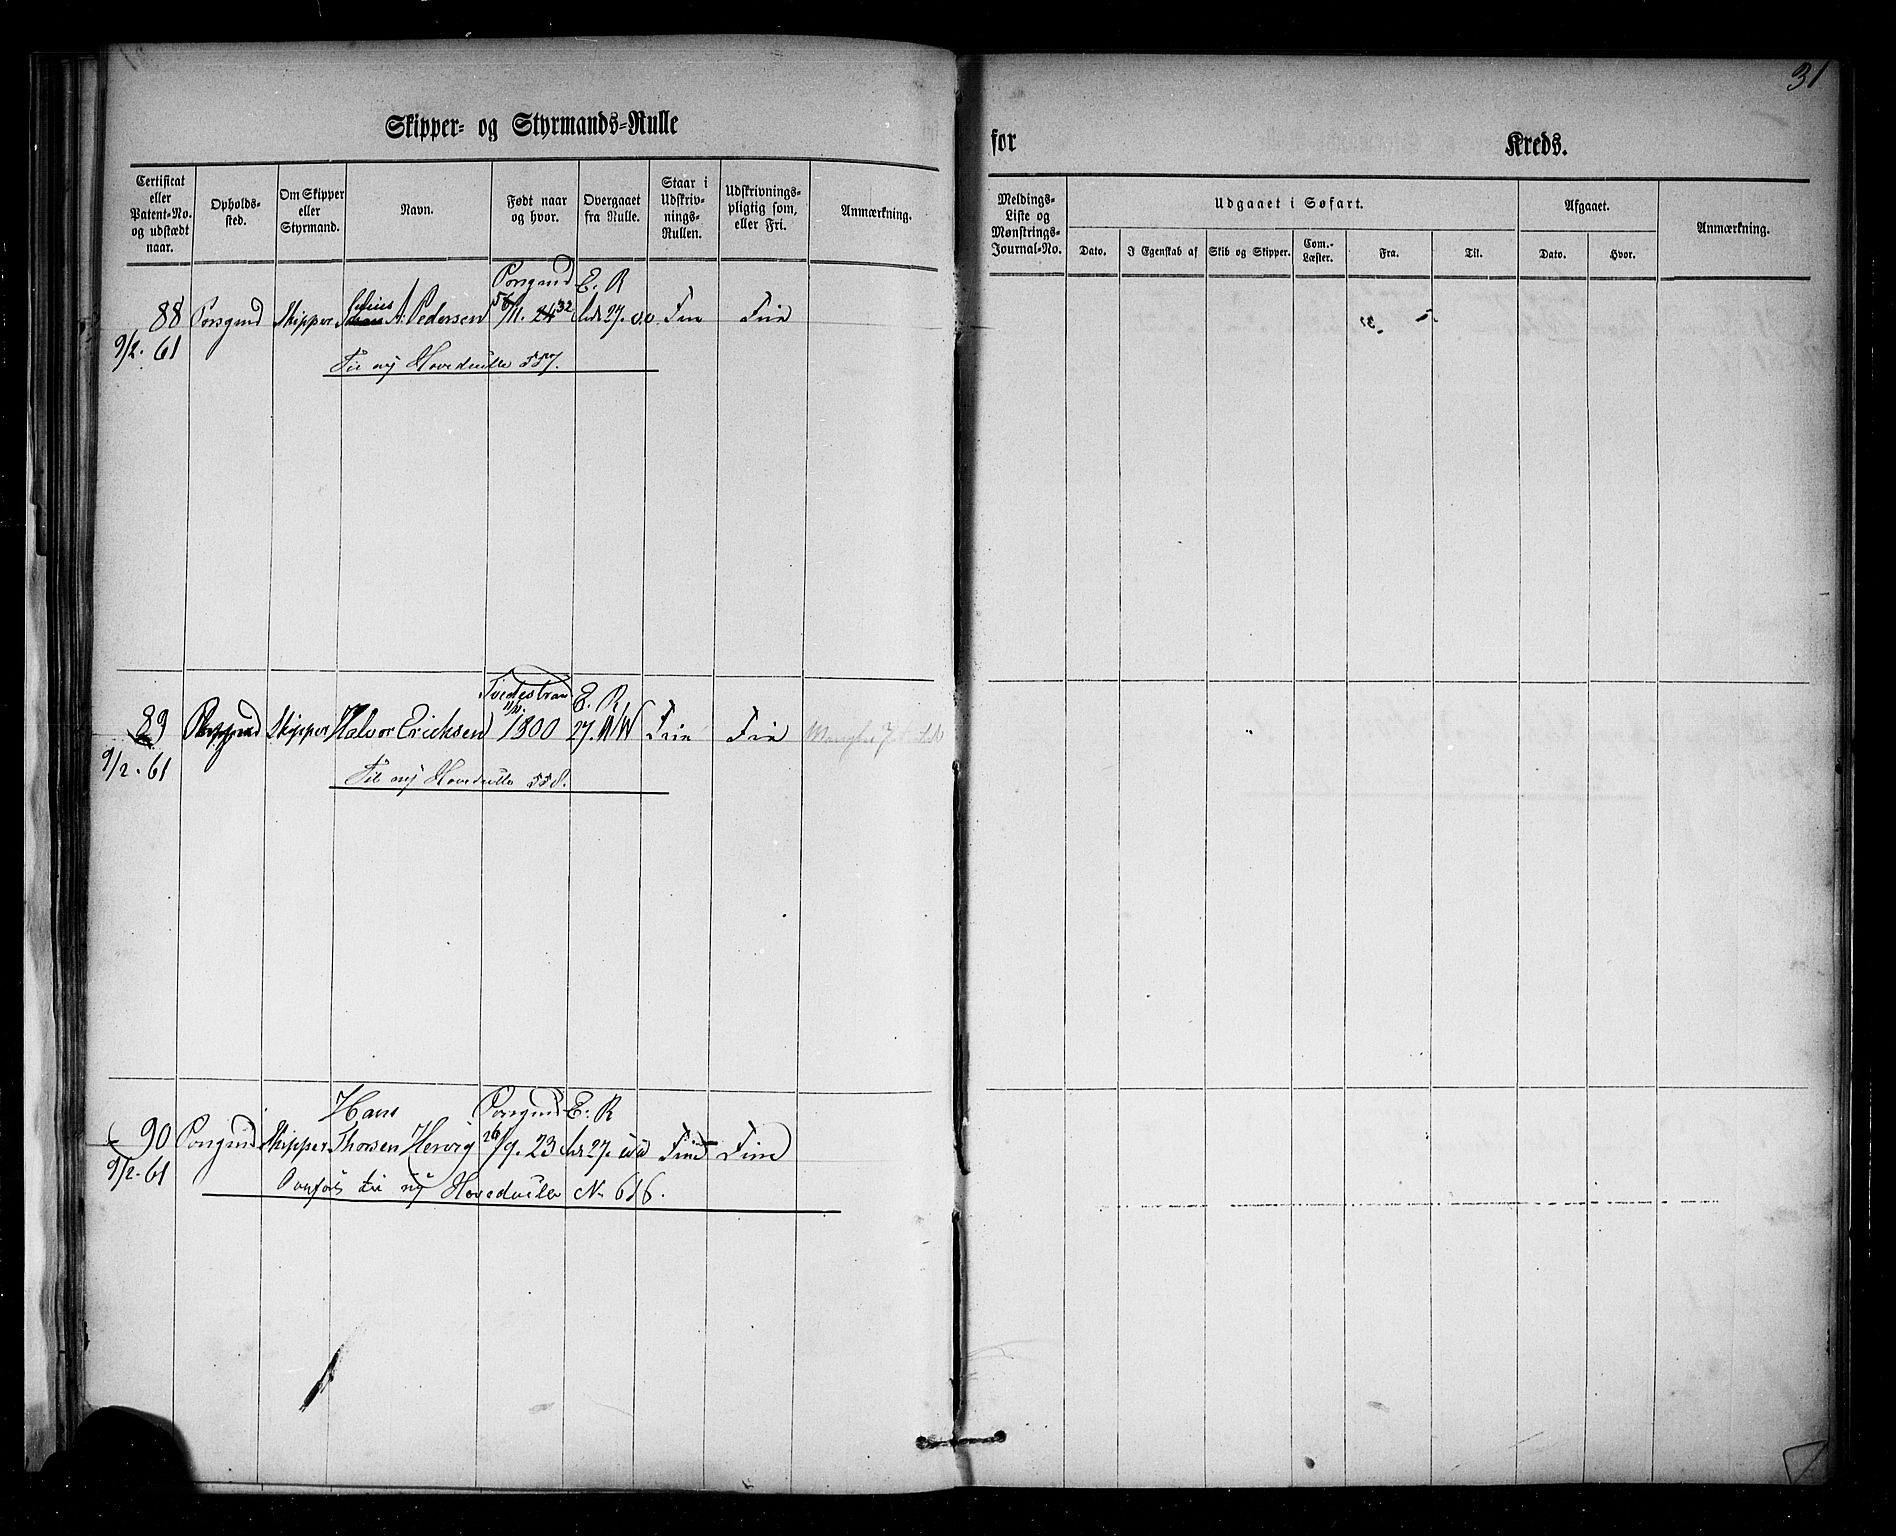 31
Skipper- og Styrmands-Rulle
for Kreds.
Certificat eller Patent-No. og udstædt naar.
Opholds-sted.
Om Skipper eller Styrmand.
Navn.
Født naar og hvor.
Overgaaet fra Rulle.
Staar i Udskriv-nings-Rullen.
Udskrivnings-pligtig som, eller Fri.
Anmærkning.
Meldings-Liste og Mønstrings-Journal-No.
Udgaaet i Søfart.
Dato.
I Egenskab af
Skib og Skipper.
Com.-Læster.
Fra.
Til.
Afgaaet.
Dato.
Hvor.
Anmærkning.
Porsgrund E. R
88 Porsgrund Skipper A. Pedersen 32 27. Fri Fri
9/2. 61
Til ny Hovedrulle 557.
Tvedestrand E. R
89 Porsgrund Skipper Halvor Ericksen 1800 27. Fri Fri
9/2. 61
Til ny Hovedrulle 558.
Hans Porsgrund E. R
90 Porsgrund Skipper Thorsen Hervig 26/9. 23 27. Fri Fri
9/2. 61
Overført til ny Hovedrulle No 616.